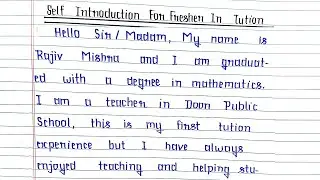 Self Introduction For Fresher In Tution
Hello Sir / Madam, My name is
Rajiv Mishra and I am graduat-
ed with a degree in mathematics.
I am a teacher in Doon Public
School, this is my first tution
experience but I have always
enjoyed teaching and helping stu-